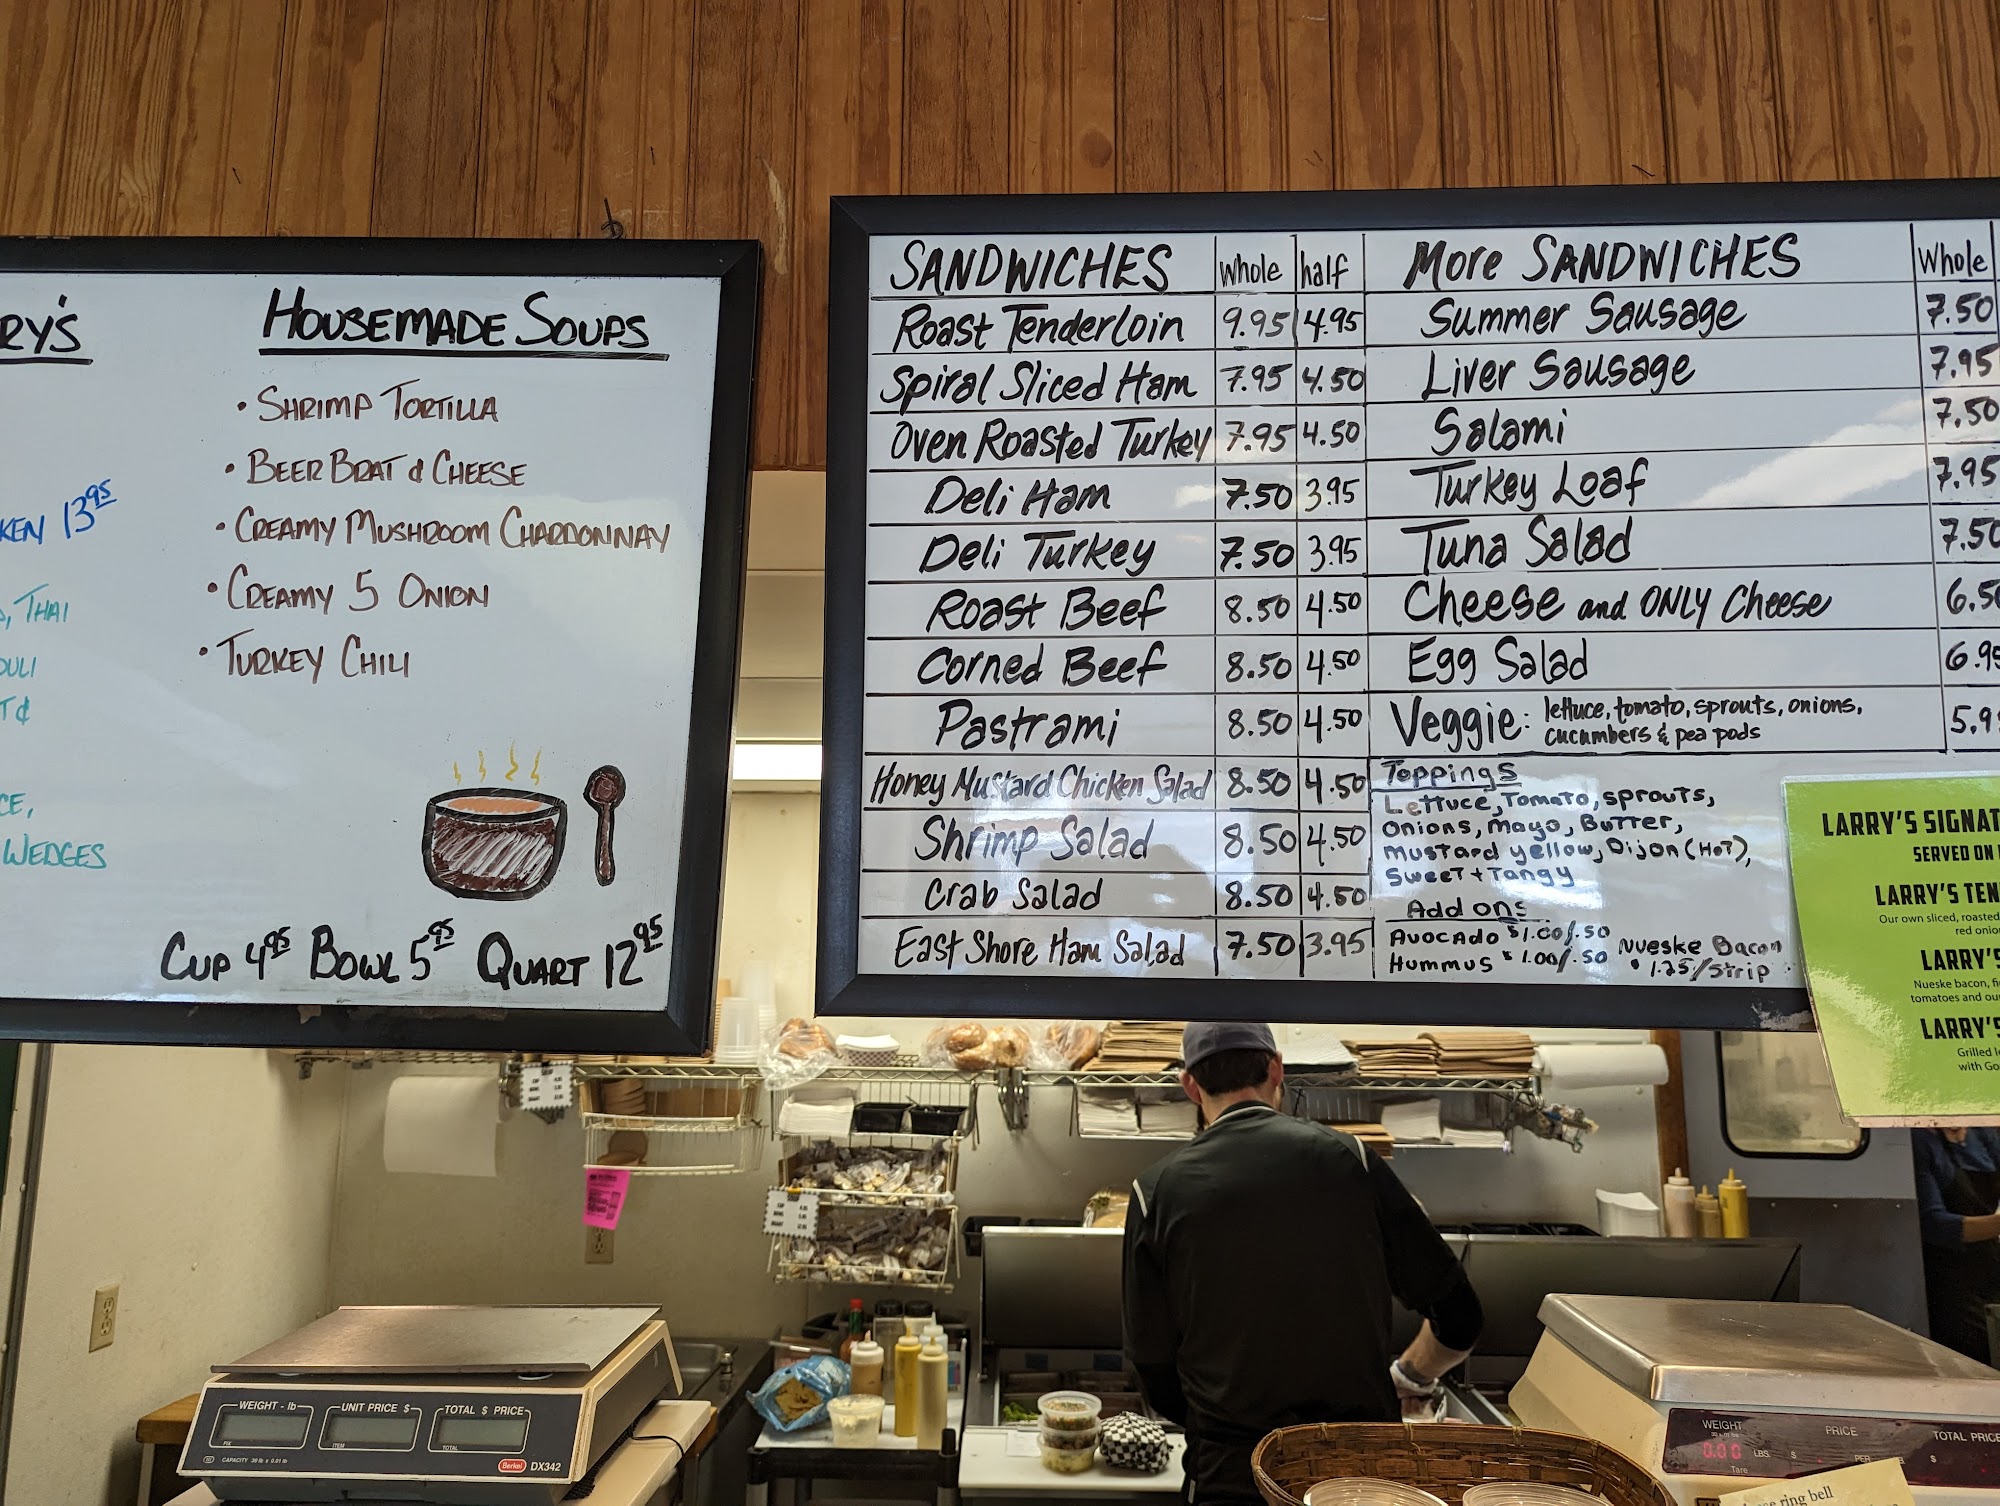 RY'S
KEN 13.95
, THAI
OULI
T &
CE,
WEDGES
HOUSEMADE SOUPS
• SHRIMP TORTILLA
• BEER BRAT & CHEESE
• CREAMY MUSHROOM CHARDONNAY
• CREAMY 5 ONION
• TURKEY CHILI
CUP 4.95 BOWL 5.95 QUART 12.95
SANDWICHES whole half
Roast Tenderloin 9.95 4.95
Spiral Sliced Ham 7.95 4.50
Oven Roasted Turkey 7.95 4.50
Deli Ham 7.50 3.95
Deli Turkey 7.50 3.95
Roast Beef 8.50 4.50
Corned Beef 8.50 4.50
Pastrami 8.50 4.50
Honey Mustard Chicken Salad 8.50 4.50
Shrimp Salad 8.50 4.50
Crab Salad 8.50 4.50
East Shore Ham Salad 7.50 3.95
More SANDWICHES Whole
Summer Sausage 7.50
Liver Sausage 7.95
Salami 7.50
Turkey Loaf 7.95
Tuna Salad 7.50
Cheese and ONLY Cheese 6.50
Egg Salad 6.95
Veggie: lettuce, tomato, sprouts, onions,
cucumbers & pea pods 5.9
Toppings
Lettuce, Tomato, sprouts,
Onions, mayo, Butter,
mustard yellow, Dijon (HOT),
Sweet + Tangy
Add ons
Avocado $1.00/.50
Hummus $1.00/.50
Nueske Bacon
$1.25/strip
LARRY'S SIGNAT
SERVED ON
LARRY'S TEN
Our own sliced, roasted
red onio
LARRY'S
Nueske bacon, fi
tomatoes and ou
LARRY'S
Grilled
with Go
WEIGHT - lb UNIT PRICE $ TOTAL $ PRICE
ITEM TOTAL
CAPACITY 30 lb x 0.01 lb
Berkel DX342
WEIGHT PRICE TOTAL PRICE
0.00 LBS. $ PER
Tare
ring bell